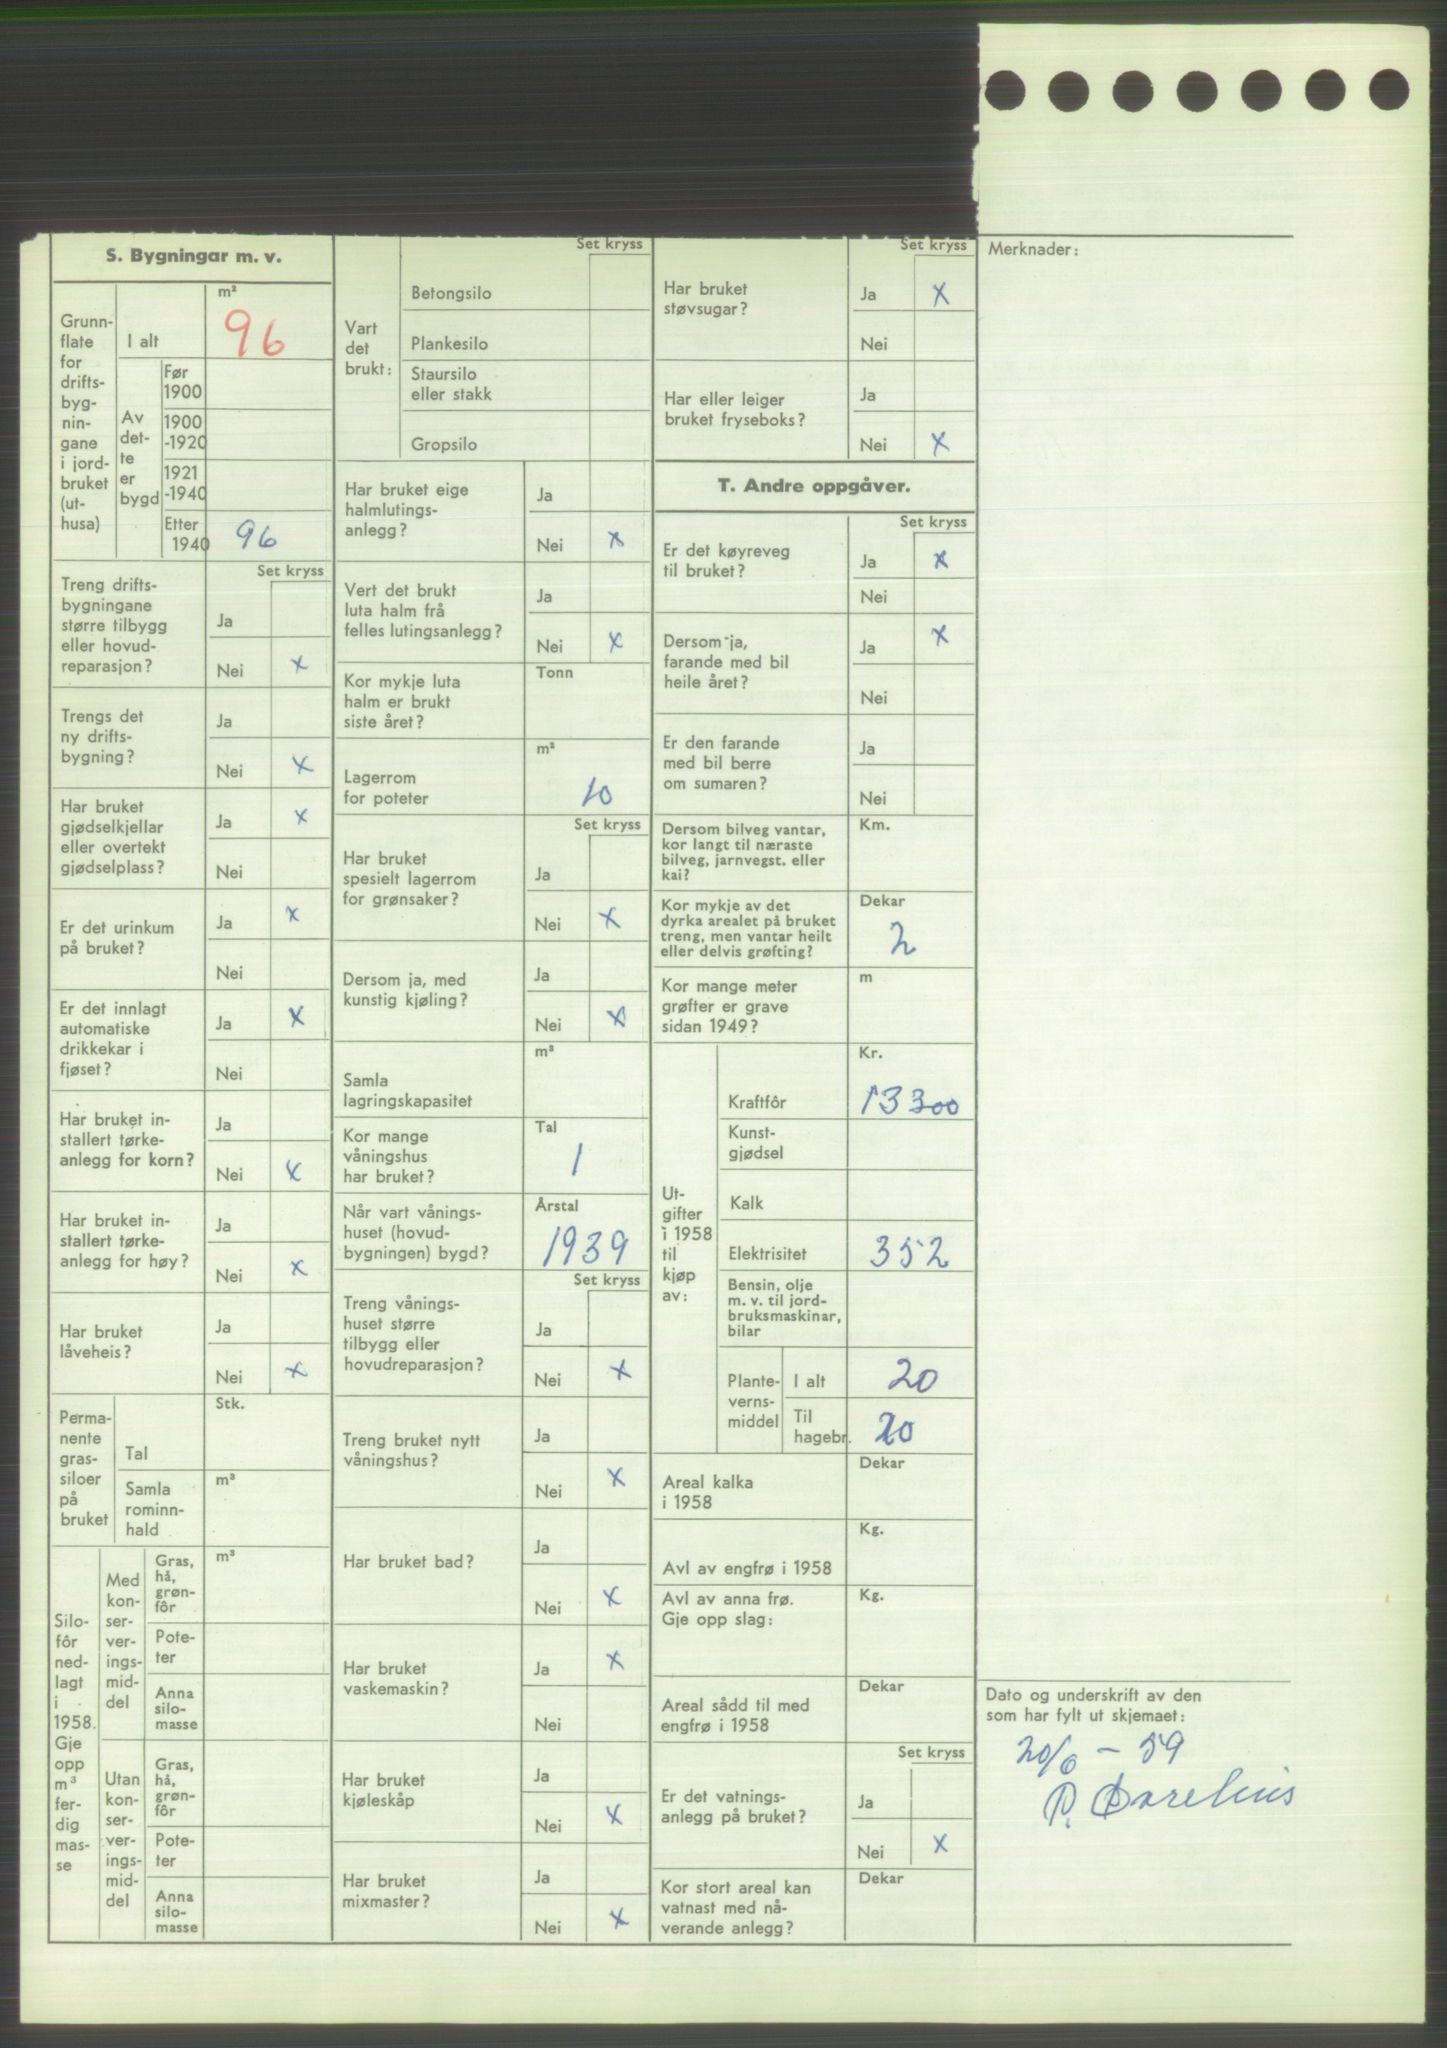 S. Bygningar m. v.
Grunn-
flate
for
drifts-
byg-
nin-
gane
i jord-
bruket
(ut-
husa)
I alt
m²
96
Av
det-
te
er
bygd
Før
1900
1900
-1920
1921
-1940
Etter
1940
96
Set kryss
Treng drifts-
bygningane
større tilbygg
eller hovud-
reparasjon?
Ja
Nei x
Trengs det
ny drifts-
bygning?
Ja
Nei x
Har bruket
gjødselkjellar
eller overtekt
gjødselplass?
Ja x
Nei
Er det urinkum
på bruket?
Ja x
Nei
Er det innlagt
automatiske
drikkekar i
fjøset?
Ja x
Nei
Har bruket in-
stallert tørke-
anlegg for korn?
Ja
Nei x
Har bruket in-
stallert tørke-
anlegg for høy?
Ja
Nei x
Har bruket
låveheis?
Ja
Nei x
Perma-
nente
gras-
siloer
på
bruket
Tal
Stk.
Samla
rominn-
hald
m³
Silo-
fôr
ned-
lagt
i
1958.
Gje
opp
m³
fer-
dig
mas-
se
Med
kon-
ser-
ver-
ings-
mid-
del
Gras,
hå,
grøn-
fôr
m³
Pote-
ter
Anna
silo-
masse
Utan
kon-
ser-
ver-
ings-
mid-
del
Gras,
hå,
grøn-
fôr
Pote-
ter
Anna
silo-
masse
Set kryss
Vart
det
brukt:
Betongsilo
Plankesilo
Staursilo
eller stakk
Gropsilo
Har bruket eige
halmlutings-
anlegg?
Ja
Nei x
Vert det brukt
luta halm frå
felles lutingsanlegg?
Ja
Nei x
Kor mykje luta
halm er brukt
siste året?
Tonn
Lagerrom
for poteter
m²
10
Set kryss
Har bruket
spesielt lagerrom
for grønsaker?
Ja
Nei x
Dersom ja, med
kunstig kjøling?
Ja
Nei x
Samla
lagringskapasitet
m³
Kor mange
våningshus
har bruket?
Tal
1
Når vart vånings-
huset (hovud-
bygningen) bygd?
Årstal
1939
Set kryss
Treng vånings-
huset større
tilbygg eller
hovudreparasjon?
Ja
Nei x
Treng bruket nytt
våningshus?
Ja
Nei x
Har bruket bad?
Ja
Nei x
Har bruket
vaskemaskin?
Ja x
Nei
Har bruket
kjøleskåp
Ja
Nei x
Har bruket
mixmaster?
Ja
Nei x
Set kryss
Har bruket
støvsugar?
Ja x
Nei
Har eller leiger
bruket fryseboks?
Ja
Nei x
T. Andre oppgåver.
Set kryss
Er det køyreveg
til bruket?
Ja x
Nei
Dersom ja,
farande med bil
heile året?
Ja x
Nei
Er den farande
med bil berre
om sumaren?
Ja
Nei
Dersom bilveg vantar,
kor langt til næraste
bilveg, jarnvegst. eller
kai?
Km.
Kor mykje av det
dyrka arealet på bruket
treng, men vantar heilt
eller delvis grøfting?
Dekar
2
Kor mange meter
grøfter er grave
sidan 1949?
m
Ut-
gifter
i 1958
til
kjøp
av:
Kraftfôr
Kr.
13300
Kunst-
gjødsel
Kalk
Elektrisitet
352
Bensin, olje
m. v. til jord-
bruksmaskinar,
bilar
Plante-
verns-
middel
I alt
20
Til
hagebr.
20
Areal kalka
i 1958
Dekar
Avl av engfrø i 1958
Kg.
Avl av anna frø.
Gje opp slag:
Kg.
Areal sådd til med
engfrø i 1958
Dekar
Set kryss
Er det vatnings-
anlegg på bruket?
Ja
Nei x
Kor stort areal kan
vatnast med nå-
verande anlegg?
Dekar
Merknader:
Dato og underskrift av den
som har fylt ut skjemaet:
20/6 - 59
P.